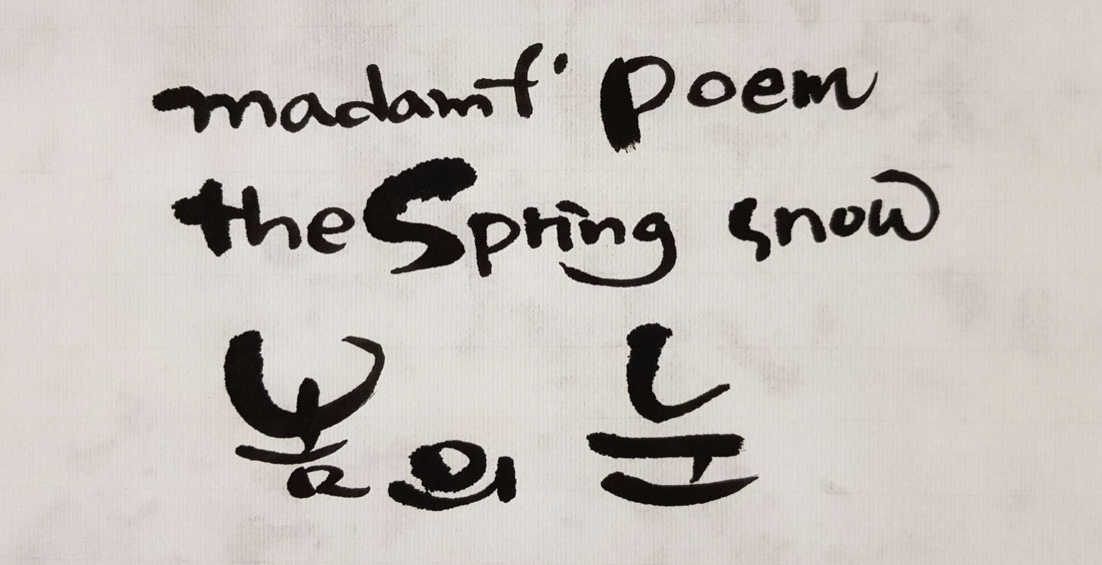 madamf' Poem
the Spring snow
봄의 눈